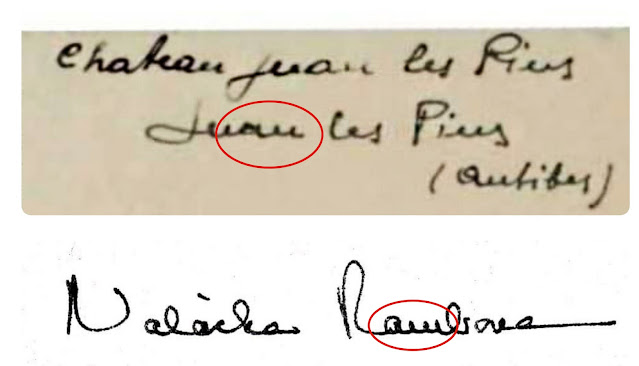 Chateau Juan les Pins
Juan les Pins
(Antibes)
Natàcha Rambova